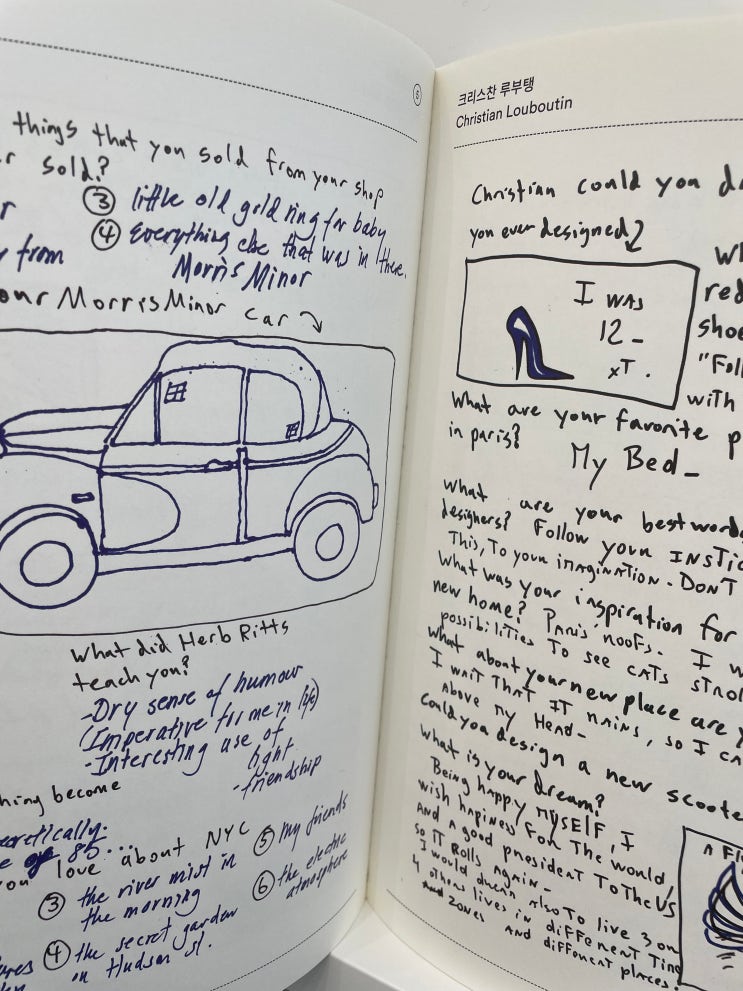 things that you sold from your shop
sold?
③ little old gold ring for baby
④ Everything else that was in there.
from
Morris Minor
our Morris Minor car
What did Herb Ritts
teach you?
-Dry sense of humour
(Imperative for me in life)
-Interesting use of
light
-friendship
thing become
85...
you love about NYC
③ the river mist in
the morning
④ the secret garden
on Hudson St.
⑤ my friends
⑥ the electric
atmosphere
크리스찬 루부탱
Christian Louboutin
Christian could you
you ever designed?
I WAS
12-
red
shoe
"Foll
with
What are your favorite p
in paris?
My Bed-
What are your best words
designers? Follow your INSTIC
This, To your imagination - DON'T
What was your inspiration for
new home? Paris' roofs. I w
possibilities To see cATs STROL
What about your new place are y
I WAIT THAT IT RAINS, SO I CA
Above my HEAD-
Could you design a new scoote
What is your dream?
Being happy MYSELF, I
wish hapiness For The world,
And a good president To The US
so IT Rolls Again-
I would dream Also To live 3 or
4 others lives in different Time
And zones And different places.
A Fl